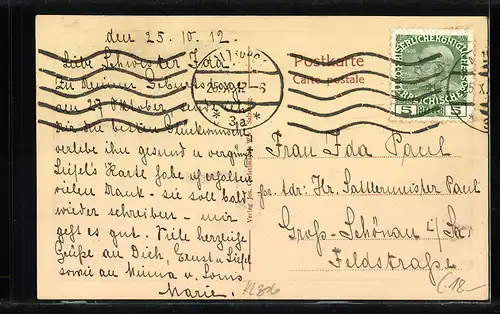 den 25. 10. 12.
Liebe Schwester Ida!
Zu Deinem Geburtstage
am 27. Oktober sende ich
Dir die besten Glückwünsche
verlebe ihn gesund und vergnügt
Liesel's Karte habe ich erhalten
vielen Dank – sie soll bald
wieder schreiben – mir
geht es gut. Viele herzliche
Grüße an Dich, Ernst u. Liesel
sowie an Minna u. Louis
Marie.
25.X.12-6
* 3a *
Postkarte
Carte postale
5 5
25.X.
Frau Ida Paul
per adr: Hr. Sattlermeister Paul
Groß-Schönau i/Sa.
Feldstraße